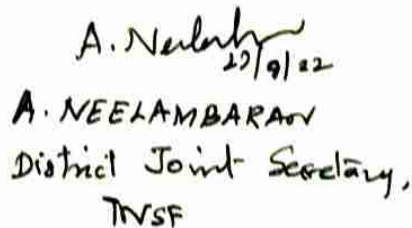 A. Neelamb
27/9/22
A. NEELAMBARAN
District Joint Secretary,
TNSF